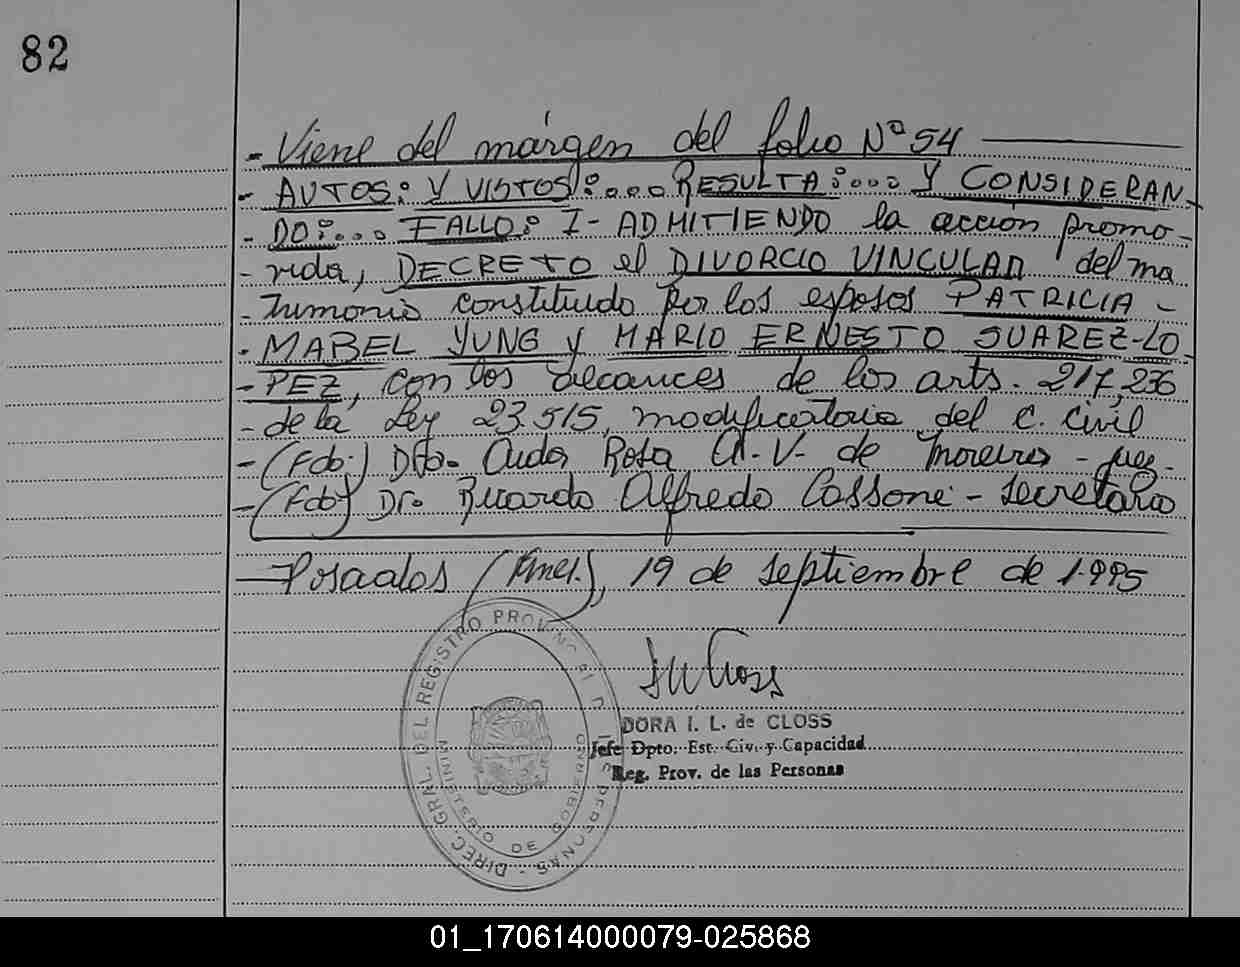 82
- Viene del márgen del folio Nº 54 ———
- AUTOS: Y VISTOS:.... RESULTA:.... Y CONSIDERAN-
- DO:.... FALLO: I- ADMITIENDO la acción promo-
- vida, DECRETO el DIVORCIO VINCULAR del ma
- trimonio constituido por los esposos PATRICIA -
- MABEL YUNG y MARIO ERNESTO SUAREZ-LO
- PEZ, con los alcances de los arts. 217, 236
- de la Ley 23.515, modificatoria del C. Civil
- (Fdo:) Dra. Rosa A. V. de Moreira - Juez-
- (Fdo) Dr. Ricardo Alfredo Cassoni - Secretario
— Posadas (Mnes.), 19 de septiembre de 1.995
DIREC. GRAL. DEL REGISTRO PROVINCIAL DE LAS PERSONAS
MINISTERIO DE GOBIERNO
DORA I. L. de CLOSS
Jefe Dpto. Est. Civ. y Capacidad
Reg. Prov. de las Personas
01_170614000079-025868